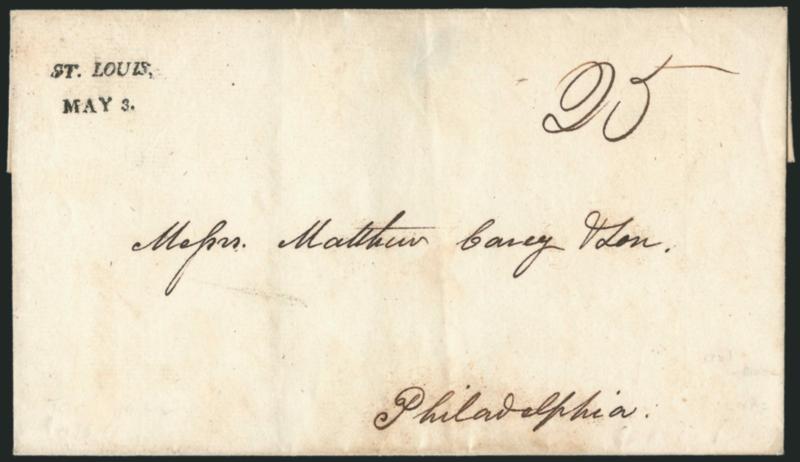 ST. LOUIS,
MAY 3.
25
Messrs. Matthew Carey & Son.
Philadelphia.